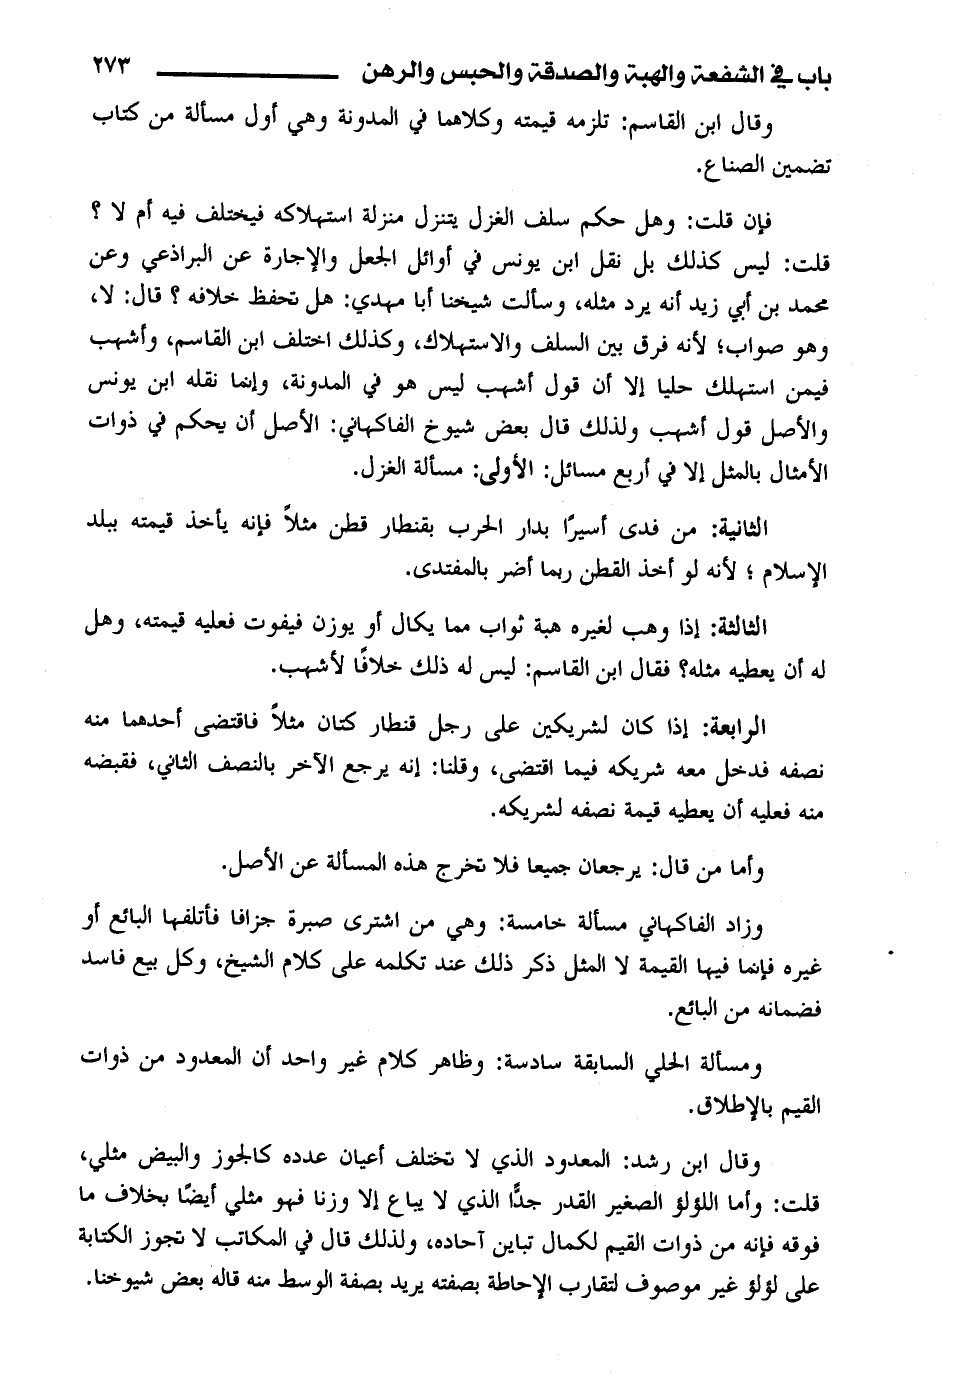 باب في الشفعة والهبة والصدقة والحبس والرهن ٢٧٣
وقال ابن القاسم: تلزمه قيمته وكلاهما في المدونة وهي أول مسألة من كتاب
تضمين الصناع.
فإن قلت: وهل حكم سلف الغزل يتنزل منزلة استهلاكه فيختلف فيه أم لا ؟
قلت: ليس كذلك بل نقل ابن يونس في أوائل الجعل والإجارة عن البراذعي وعن
محمد بن أبي زيد أنه يرد مثله، وسألت شيخنا أبا مهدي: هل تحفظ خلافه ؟ قال: لا،
وهو صواب؛ لأنه فرق بين السلف والاستهلاك، وكذلك اختلف ابن القاسم، وأشهب
فيمن استهلك حليا إلا أن قول أشهب ليس هو في المدونة، وإنما نقله ابن يونس
والأصل قول أشهب ولذلك قال بعض شيوخ الفاكهاني: الأصل أن يحكم في ذوات
الأمثال بالمثل إلا في أربع مسائل: الأولى: مسألة الغزل.
الثانية: من فدى أسيرًا بدار الحرب بقنطار قطن مثلاً فإنه يأخذ قيمته ببلد
الإسلام ؛ لأنه لو أخذ القطن ربما أضر بالمفتدى.
الثالثة: إذا وهب لغيره هبة ثواب مما يكال أو يوزن فيفوت فعليه قيمته، وهل
له أن يعطيه مثله؟ فقال ابن القاسم: ليس له ذلك خلافًا لأشهب.
الرابعة: إذا كان لشريكين على رجل قنطار كتان مثلاً فاقتضى أحدهما منه
نصفه فدخل معه شريكه فيما اقتضى، وقلنا: إنه يرجع الآخر بالنصف الثاني، فقبضه
منه فعليه أن يعطيه قيمة نصفه لشريكه.
وأما من قال: يرجعان جميعا فلا تخرج هذه المسألة عن الأصل.
وزاد الفاكهاني مسألة خامسة: وهي من اشترى صبرة جزافا فأتلفها البائع أو
غيره فإنما فيها القيمة لا المثل ذكر ذلك عند تكلمه على كلام الشيخ، وكل بيع فاسد
فضمانه من البائع.
ومسألة الحلي السابقة سادسة: وظاهر كلام غير واحد أن المعدود من ذوات
القيم بالإطلاق.
وقال ابن رشد: المعدود الذي لا تختلف أعيان عدده كالجوز والبيض مثلي،
قلت: وأما اللؤلؤ الصغير القدر جدًّا الذي لا يباع إلا وزنا فهو مثلي أيضًا بخلاف ما
فوقه فإنه من ذوات القيم لكمال تباين آحاده، ولذلك قال في المكاتب لا تجوز الكتابة
على لؤلؤ غير موصوف لتقارب الإحاطة بصفته يريد بصفة الوسط منه قاله بعض شيوخنا.